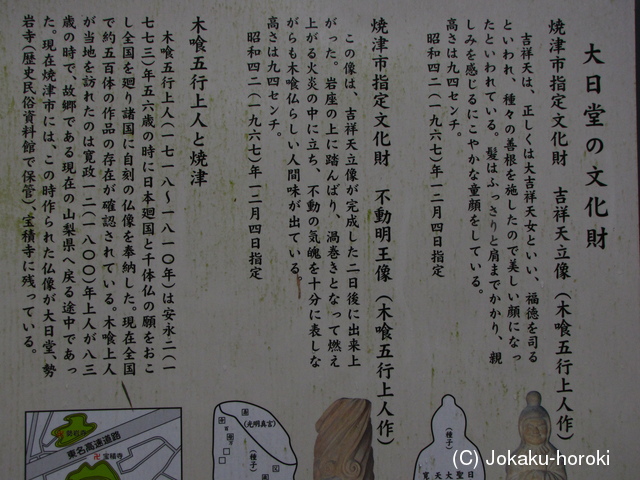 大日堂の文化財
焼津市指定文化財　吉祥天立像（木喰五行上人作）
吉祥天は、正しくは大吉祥天女といい、福徳を司る
といわれ、種々の善根を施したので美しい顔になっ
たといわれている。髪はふっさりと肩までかかり、親
しみを感じるにこやかな童顔をしている。
高さは九四センチ。
昭和四二（一九六七）年一二月四日指定
焼津市指定文化財　不動明王像（木喰五行上人作）
この像は、吉祥天立像が完成した二日後に出来上
がった。岩座の上に踏んばり、渦巻きとなって燃え
上がる火炎の中に立ち、不動の気魄を十分に表しな
がらも木喰仏らしい人間味が出ている。
高さは九四センチ。
昭和四二（一九六七）年一二月四日指定
木喰五行上人と焼津
木喰五行上人（一七一八〜一八一〇年）は安永二（一
七七三）年五六歳の時に日本廻国と千体仏の願をおこ
し全国を廻り諸国に自刻の仏像を奉納した。現在全国
で約五百体の作品の存在が確認されている。木喰上人
が当地を訪れたのは寛政一二（一八〇〇）年上人が八三
歳の時で、故郷である現在の山梨県へ戻る途中であっ
た。現在焼津市には、この時作られた仏像が大日堂、勢
岩寺（歴史民俗資料館で保管）、宝積寺に残っている。
（種子）
日聖大天寛
（光明真言）
（種子）
東名高速道路
卍宝積寺
(C) Jokaku-horoki